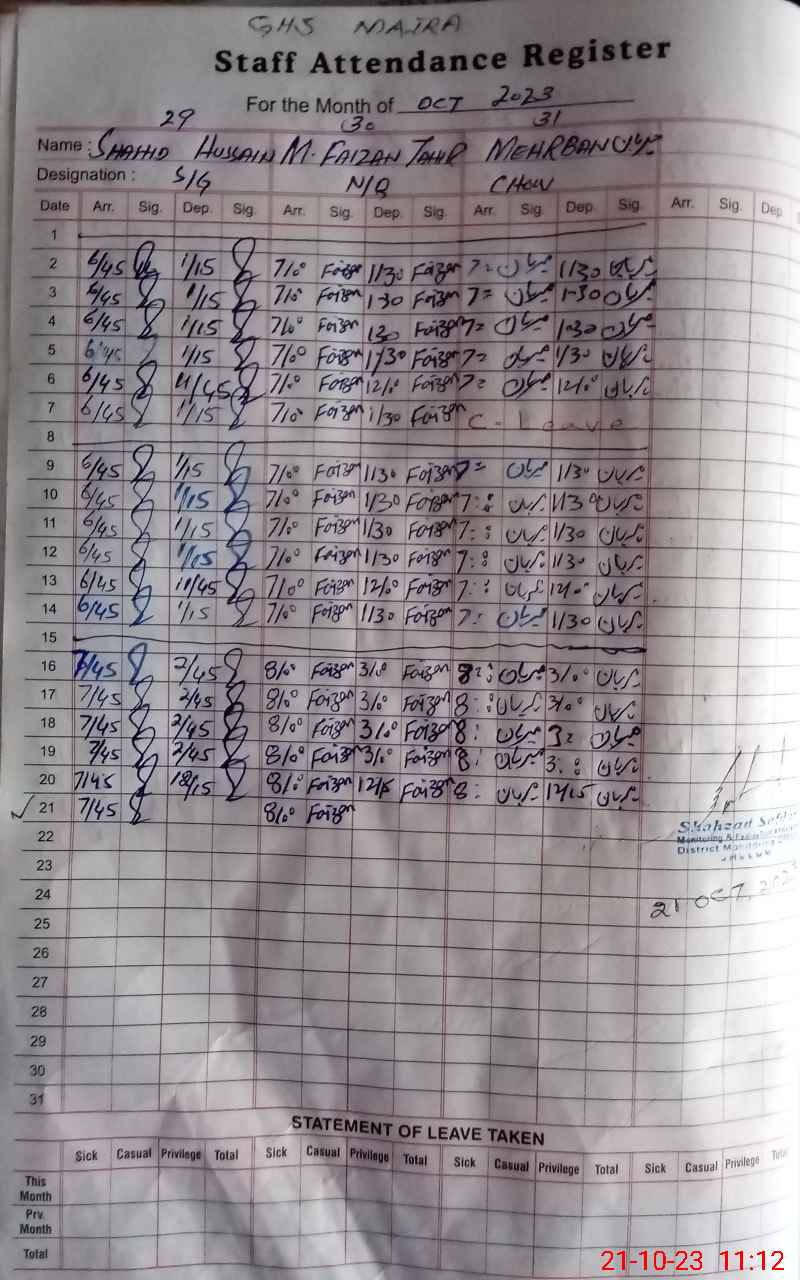 GHS MAJRA
Staff Attendance Register
For the Month of OCT 2023
29 30 31
Name : SHAHID HUSSAIN M. FAIZAN TAHIR MEHRBAN
Designation : S/G N/Q CHOW
Date Arr. Sig. Dep. Sig. Arr. Sig. Dep. Sig. Arr. Sig. Dep. Sig. Arr. Sig. Dep.
1
2 6/45 1/15 7/00 Faizan 1/30 Faizan 7= مہربان 1/30 مہربان
3 6/45 1/15 7/00 Faizan 1-30 Faizan 7= مہربان 1-30 مہربان
4 6/45 1/15 7/00 Faizan 130 Faizan 7= مہربان 1-30 مہربان
5 6/45 1/15 7/00 Faizan 1/30 Faizan 7= مہربان 1/30 مہربان
6 6/45 11/45 7/00 Faizan 12/00 Faizan 7= مہربان 12/00 مہربان
7 6/45 1/15 7/00 Faizan 1/30 Faizan C. Leave
8
9 6/45 1/15 7/00 Faizan 1/30 Faizan 7= مہربان 1/30 مہربان
10 6/45 1/15 7/00 Faizan 1/30 Faizan 7: مہربان 1/30 مہربان
11 6/45 1/15 7/00 Faizan 1/30 Faizan 7: مہربان 1/30 مہربان
12 6/45 1/15 7/00 Faizan 1/30 Faizan 7: مہربان 1/30 مہربان
13 6/45 11/45 7/00 Faizan 12/00 Faizan 7: مہربان 12/00 مہربان
14 6/45 1/15 7/00 Faizan 1/30 Faizan 7: مہربان 1/30 مہربان
15
16 7/45 2/45 8/00 Faizan 3/0 Faizan 8: مہربان 3/00 مہربان
17 7/45 2/45 8/00 Faizan 3/0 Faizan 8: مہربان 3/00 مہربان
18 7/45 2/45 8/00 Faizan 3/00 Faizan 8: مہربان 3= مہربان
19 7/45 2/45 8/00 Faizan 3/00 Faizan 8: مہربان 3: مہربان
20 7/45 12/15 8/00 Faizan 12/15 Faizan 8: مہربان 12/15 مہربان
21 7/45 8/00 Faizan
22
23
24
25
26
27
28
29
30
31
Shahzad
Monitoring &
District Monitoring
21 OCT, 202
STATEMENT OF LEAVE TAKEN
Sick Casual Privilege Total Sick Casual Privilege Total Sick Casual Privilege Total Sick Casual Privilege
This Month
Prv. Month
Total
21-10-23 11:12